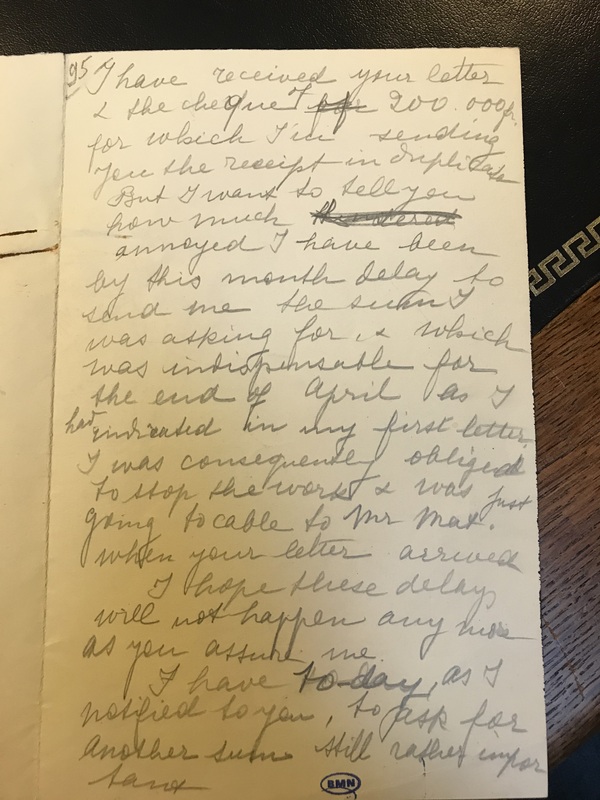 95 I have received your letter
& the cheque of 200.000fr.
for which I'm sending
you the receipt in duplicate
But I want to tell you
how much
annoyed I have been
by this month delay to
send me the sum I
was asking for, & which
was indispensable for
the end of April as I
had indicated in my first letter
I was consequently obliged
to stop the work & was just
going to cable to Mr Mat.
when your letter arrived
I hope these delays
will not happen any more
as you assure me
I have to-day, as I
notified to you, to ask for
another sum still rather impor
tant
BMN